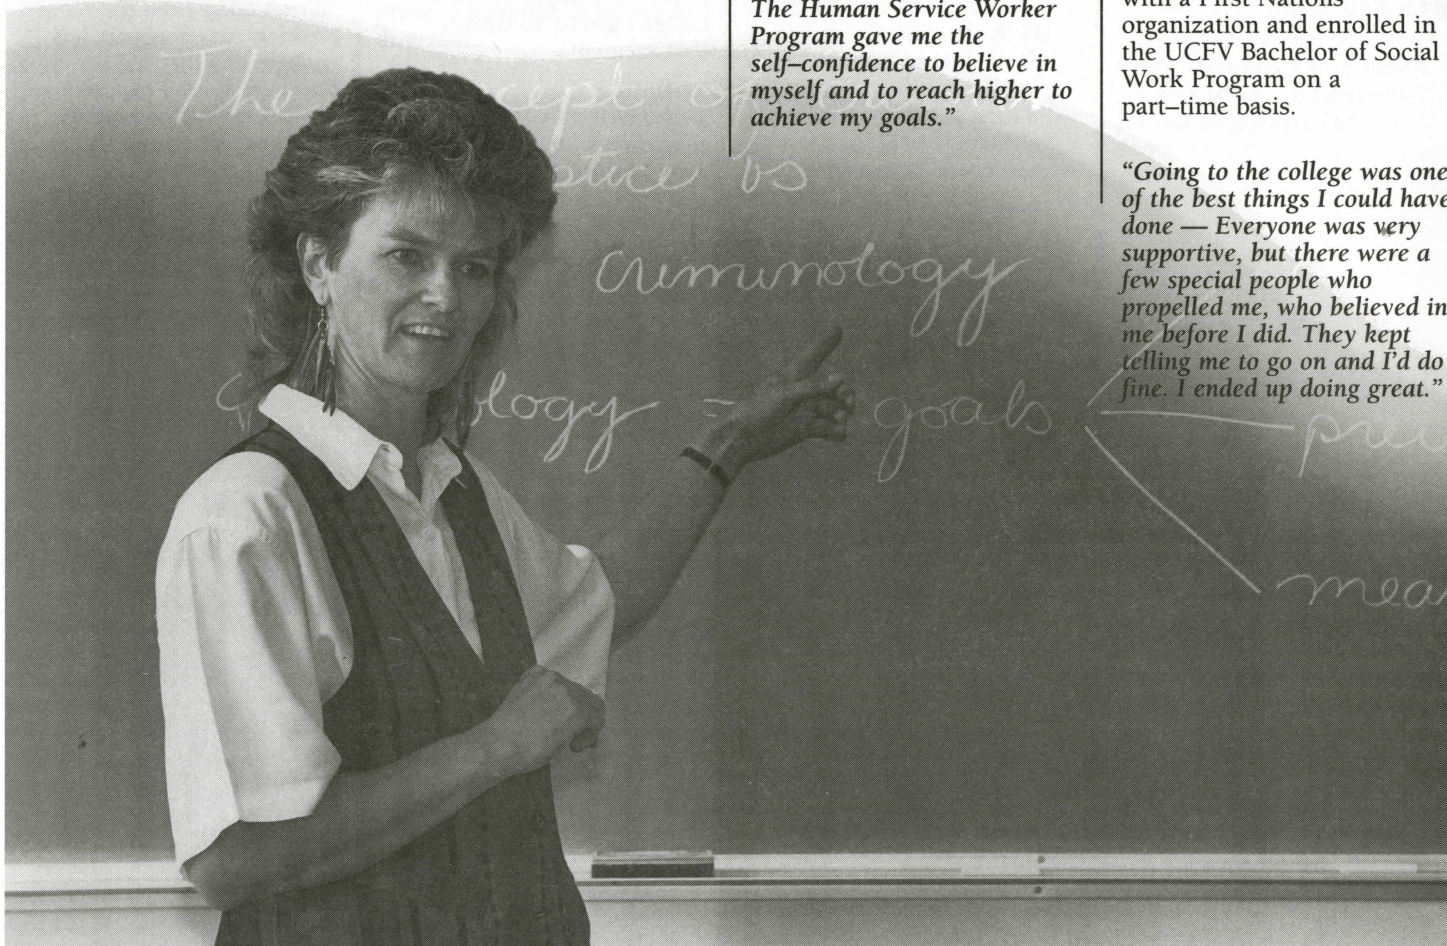 The Human Service Worker
Program gave me the
self–confidence to believe in
myself and to reach higher to
achieve my goals.”
with a First Nations
organization and enrolled in
the UCFV Bachelor of Social
Work Program on a
part–time basis.
“Going to the college was one
of the best things I could have
done — Everyone was very
supportive, but there were a
few special people who
propelled me, who believed in
me before I did. They kept
telling me to go on and I’d do
fine. I ended up doing great.”
The
criminology
= goals